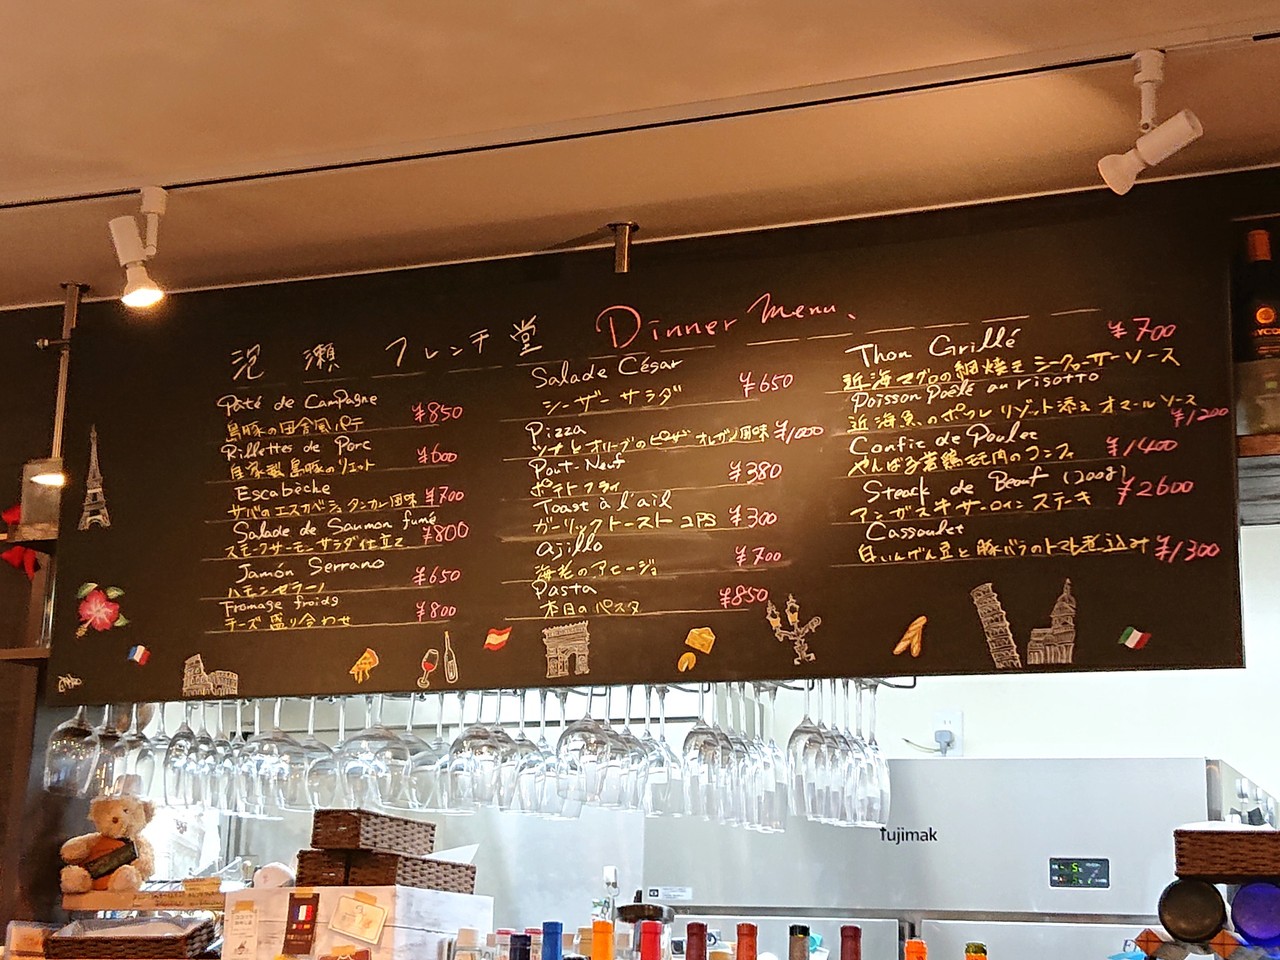 泡瀬 フレンチ堂 Dinner Menu.
Pâté de Campagne
島豚の田舎風パテ ¥850
Rillettes de Porc
自家製島豚のリエット ¥600
Escabèche
サバのエスカベシュ タンカン風味 ¥700
Salade de Saumon fumé
スモークサーモン サラダ仕立て ¥800
Jamón Serrano
ハモンセラーノ ¥650
Fromage froids
チーズ盛り合わせ ¥800
Salade César
シーザーサラダ ¥650
Pizza
ツナとオリーブのピザ オレガノ風味 ¥1000
Pont-Neuf
ポテトフライ ¥380
Toast à l'ail
ガーリックトースト 2PS ¥300
ajillo
海老のアヒージョ ¥700
Pasta
本日のパスタ ¥850
Thon Grillé ¥700
近海マグロの網焼き シークヮーサーソース
Poisson Poêlé au risotto
近海魚のポワレ リゾット添え オマールソース ¥1200
Confit de Poulet
やんばる若鶏モモ肉のコンフィ ¥1400
Steack de Beouf (200g)
アンガス牛サーロインステーキ ¥2600
Cassoulet
白いんげん豆と豚バラのトマト煮込み ¥1300
fujimak